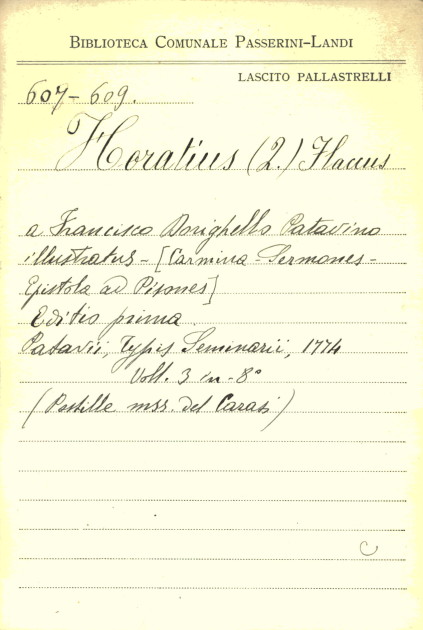 BIBLIOTECA COMUNALE PASSERINI-LANDI
LASCITO PALLASTRELLI
607-609.
Horatius (2.) Flaccus
a Francisco Dorighello Patavino
illustratus - [Carmina - Sermones -
Epistola ad Pisones]
Editio prima
Patavii, Typis Seminarii, 1774
Voll. 3 in-8°
(Postille mss. del Carasi)
C